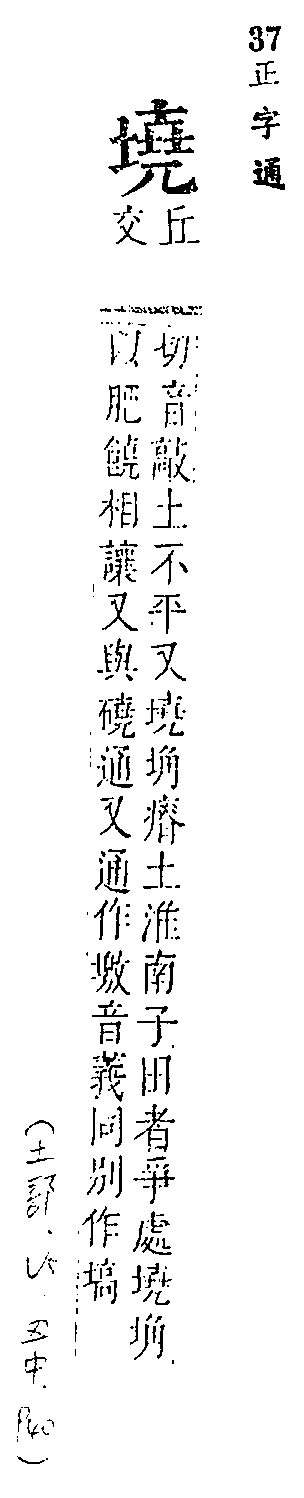 37
正字通
墝
丘
交
切音敲土不平又墝埆瘠土淮南子田者爭處墝埆
以肥饒相讓又與磽通又通作墽音義同別作塙